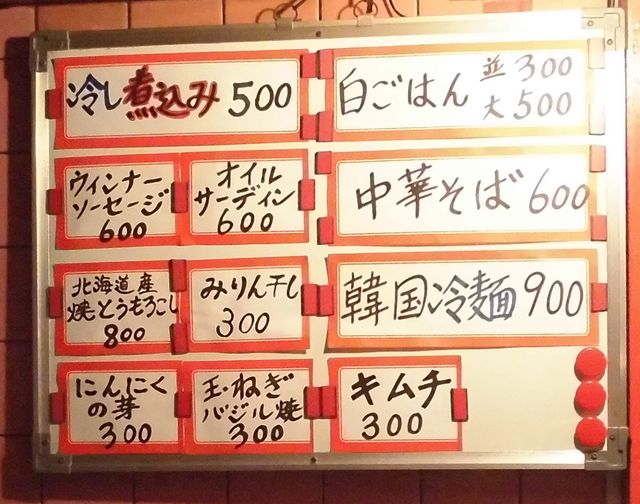 冷し煮込み 500
白ごはん 並300
大500
ウィンナー
ソーセージ
600
オイル
サーディン
600
中華そば 600
北海道産
焼とうもろこし
800
みりん干し
300
韓国冷麺 900
にんにく
の芽
300
玉・ねぎ
バジル焼
300
キムチ
300